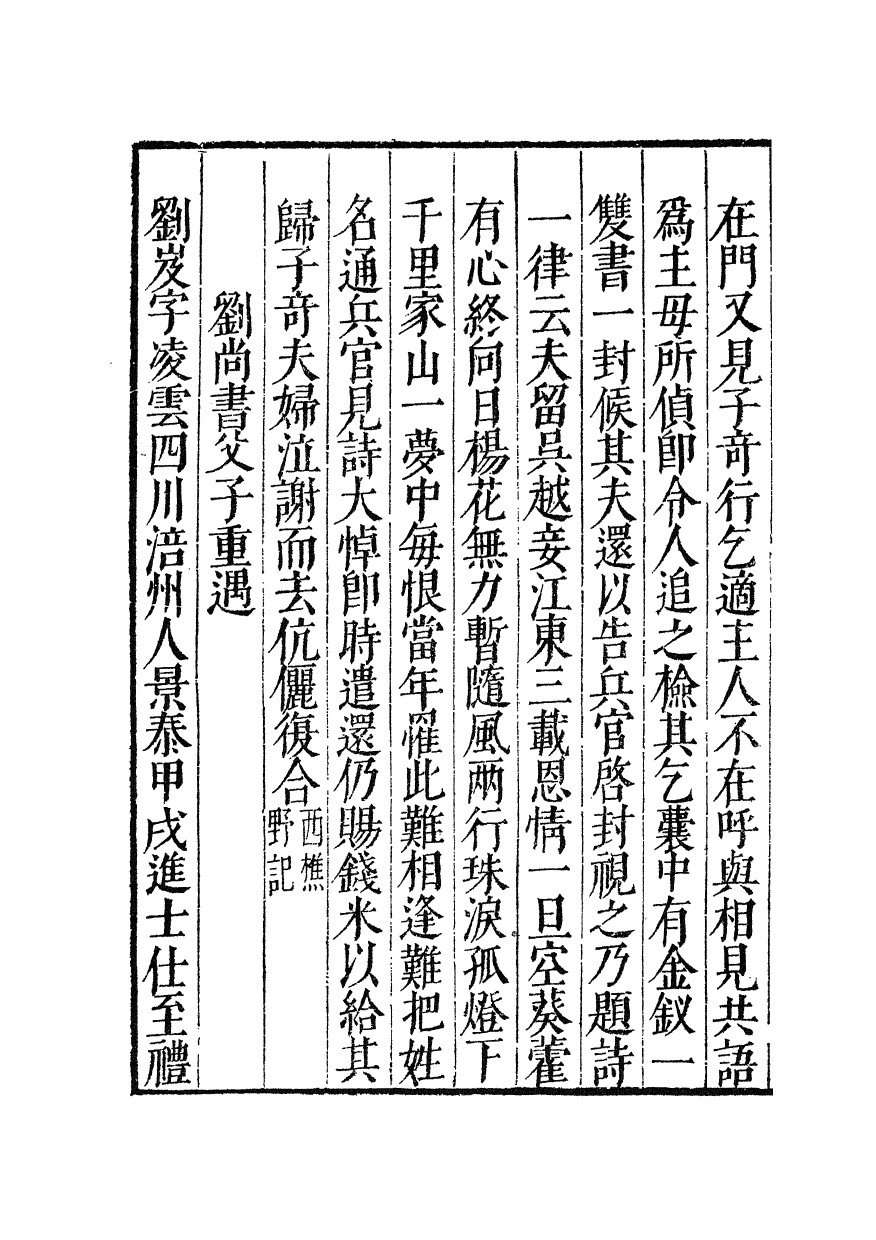 在門又見子奇行乞適主人不在呼與相見共語
爲主母所偵卽令人追之檢其乞囊中有金釵一
雙書一封候其夫還以告兵官啓封視之乃題詩
一律云夫留吳越妾江東三載恩情一旦空葵藿
有心終向日楊花無力暫隨風兩行珠淚孤燈下
千里家山一夢中每恨當年罹此難相逢難把姓
名通兵官見詩大悼卽時遣還仍賜錢米以給其
歸子奇夫婦泣謝而去伉儷復合西樵野記
劉尚書父子重遇
劉岌字凌雲四川涪州人景泰甲戌進士仕至禮